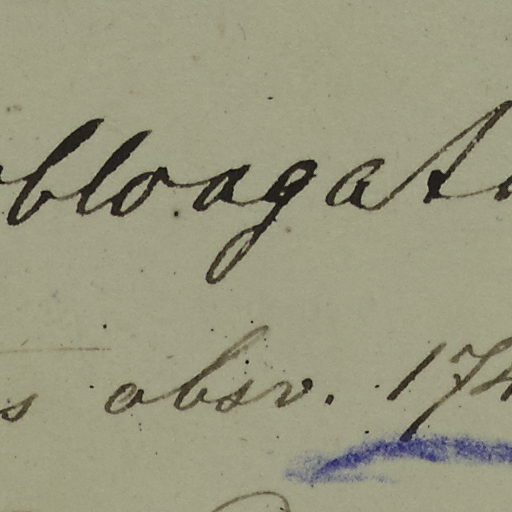 obloagat
s obsv. 174